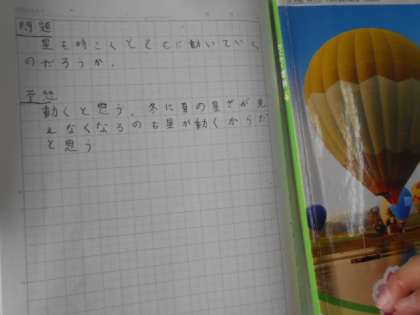 問題
星も時こくとともに動いていく
のだろうか。
予想
動くと思う。冬に夏の星ざが見
えなくなるのも星が動くからだ
と思う